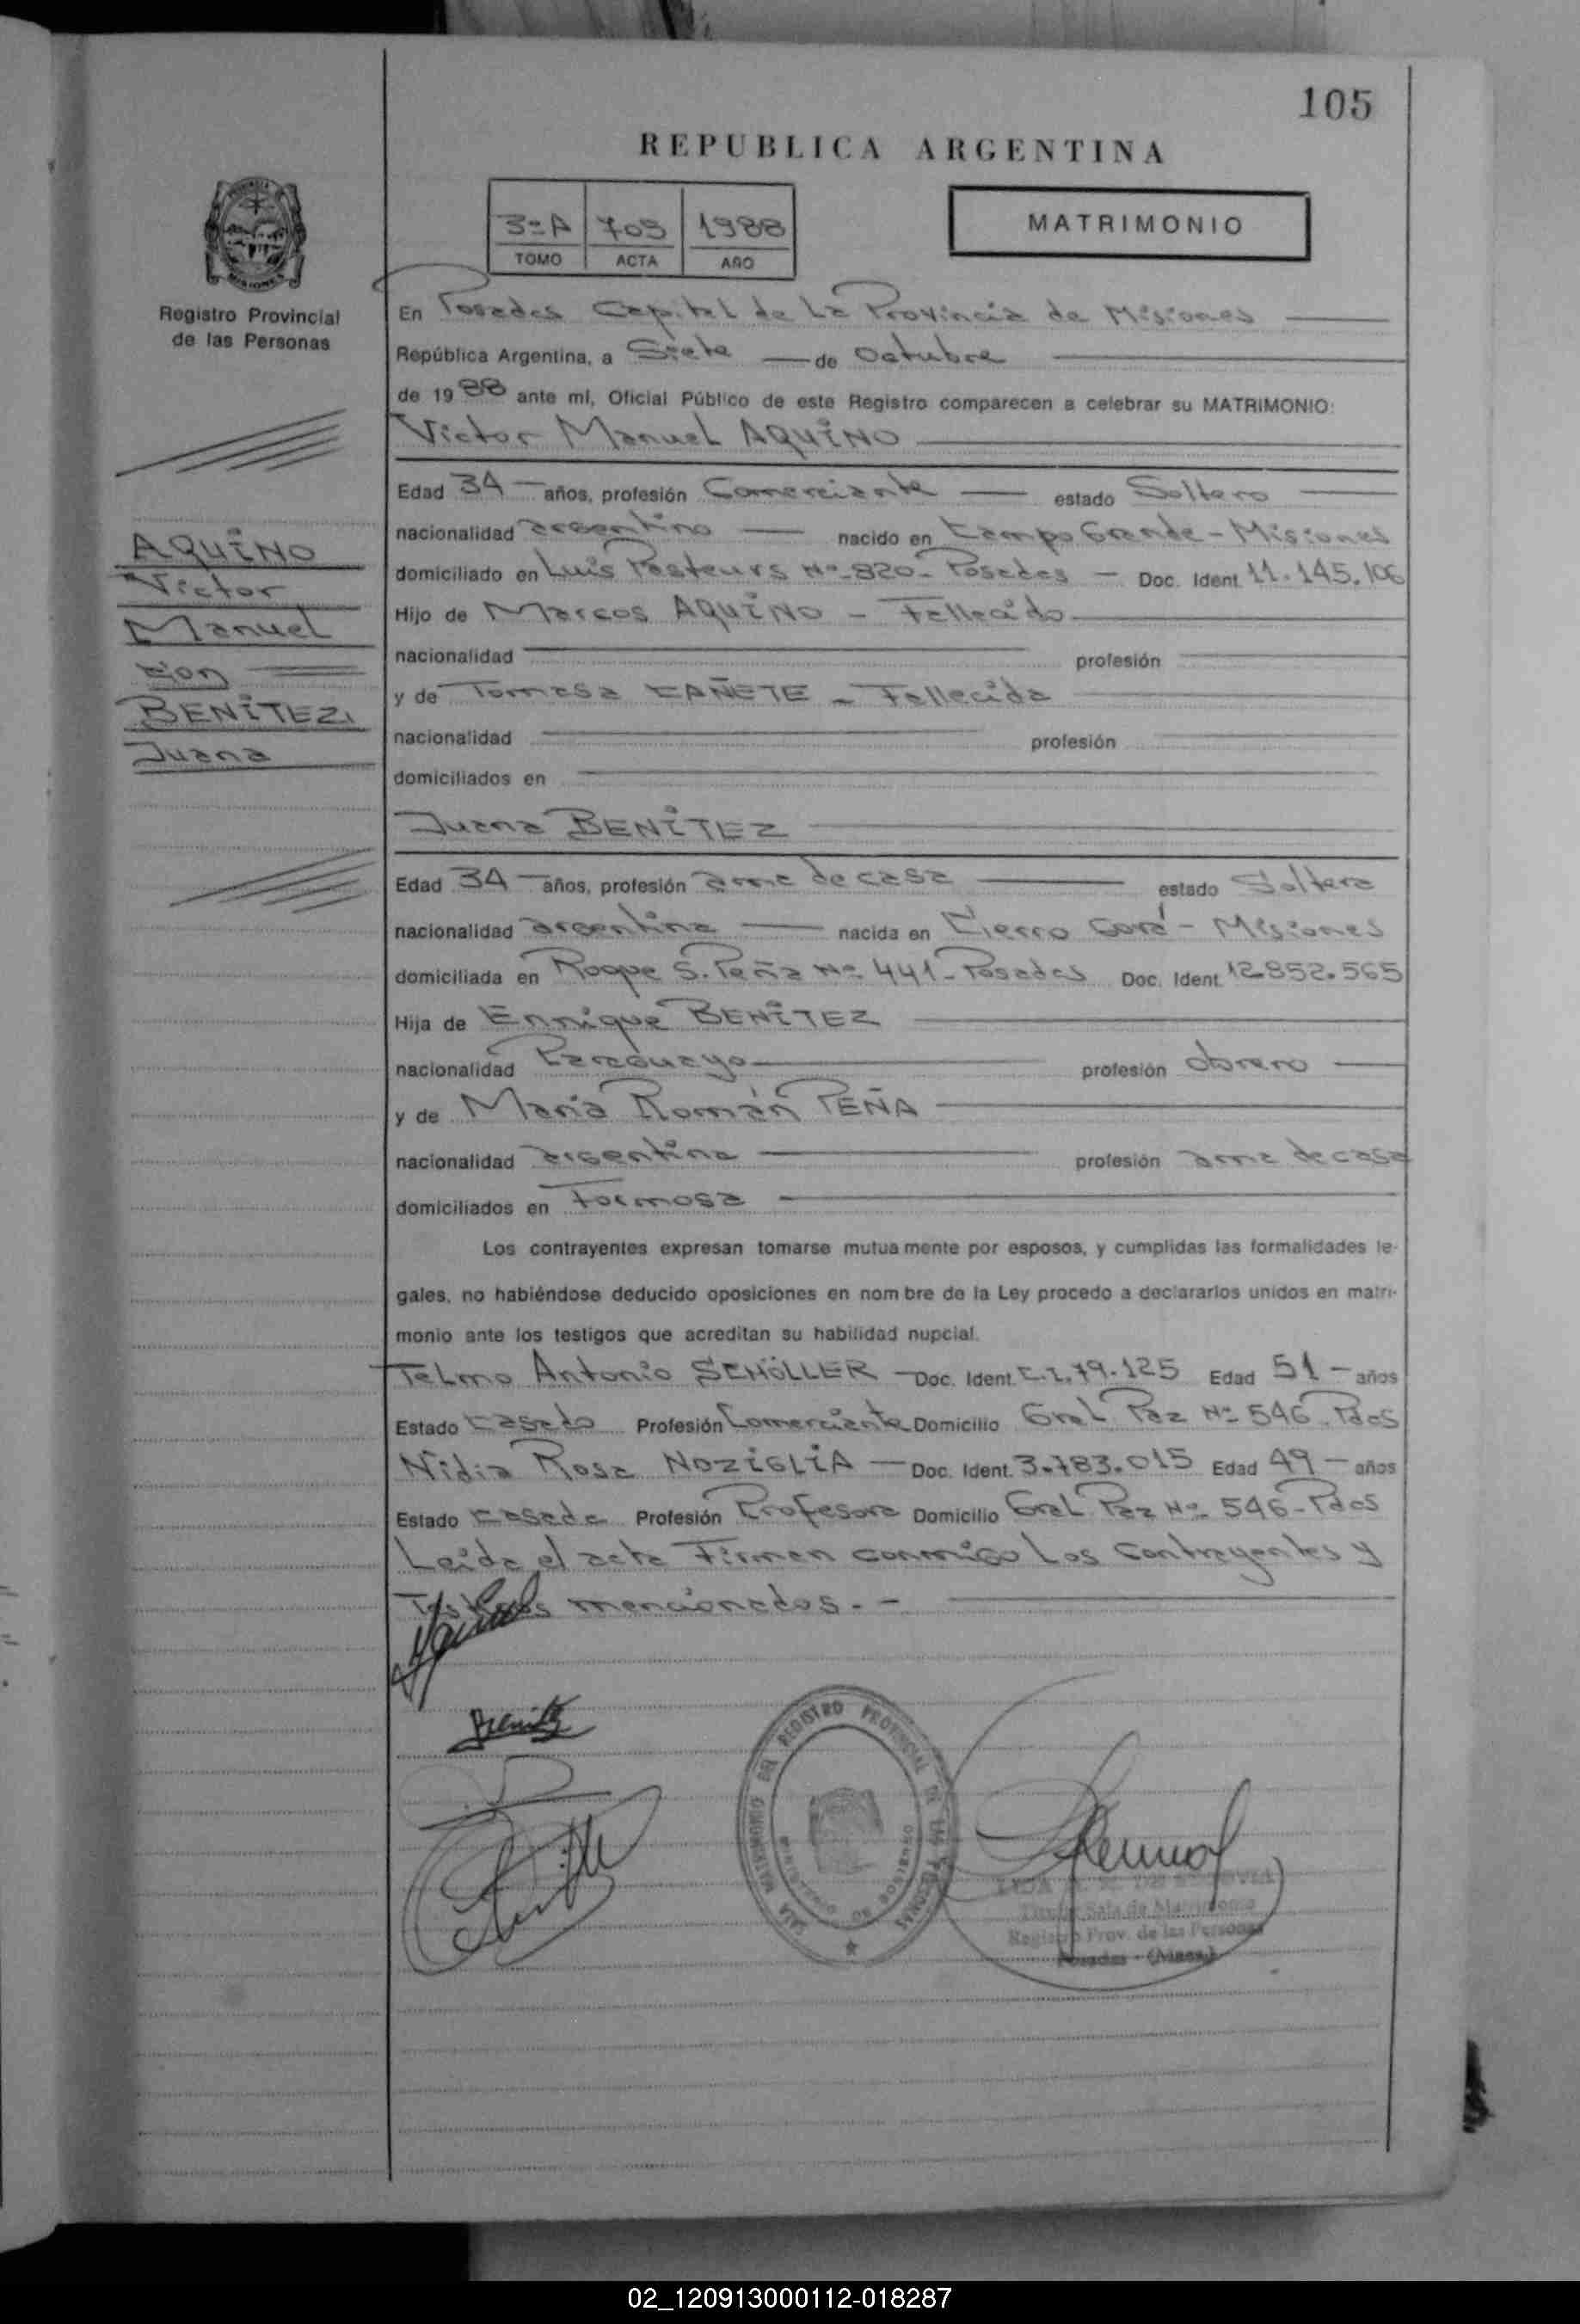 105
REPUBLICA ARGENTINA
3ºA 709 1988
TOMO ACTA AÑO
MATRIMONIO
Registro Provincial
de las Personas
AQUINO
Victor
Manuel
con
BENITEZ,
Juana
En Posadas Capital de La Provincia de Misiones
República Argentina, a Siete de Octubre
de 1988 ante mí, Oficial Público de este Registro comparecen a celebrar su MATRIMONIO:
Victor Manuel AQUINO
Edad 34 años, profesión Comerciante estado Soltero
nacionalidad argentino nacido en Campo Grande - Misiones
domiciliado en Luis Pasteurs Nº 820 - Posadas - Doc. Ident. 11.145.106
Hijo de Marcos AQUINO - Fallecido
nacionalidad profesión
y de Tomasa CAÑETE - Fallecida
nacionalidad profesión
domiciliados en
Juana BENITEZ
Edad 34 años, profesión ama de casa estado Soltera
nacionalidad argentina nacida en Cierro Corá - Misiones
domiciliada en Roque S. Peña Nº 441 - Posadas Doc. Ident. 12.852.565
Hija de Enrique BENITEZ
nacionalidad Paraguayo profesión obrero
y de María Román PEÑA
nacionalidad argentina profesión ama de casa
domiciliados en Formosa
Los contrayentes expresan tomarse mutua mente por esposos, y cumplidas las formalidades le-
gales, no habiéndose deducido oposiciones en nom bre de la Ley procedo a declararlos unidos en matri-
monio ante los testigos que acreditan su habilidad nupcial.
Telmo Antonio SCHÖLLER - Doc. Ident. C.I. 79.125 Edad 51 - años
Estado Casado Profesión Comerciante Domicilio Gral Paz Nº 546 - Pdas
Nidia Rosa NOZIGLIA - Doc. Ident. 3.783.015 Edad 49 - años
Estado Casada Profesión Profesora Domicilio Gral Paz Nº 546 - Pdas
Leida el acta Firman conmigo Los Contrayentes y
Testigos mencionados. -
Benitez
SALA MATRIMONIO DEL REGISTRO PROVINCIAL DE LAS PERSONAS
Titular Sala de Matrimonio
Registro Prov. de las Personas
Posadas - (Mnes.)
02_120913000112-018287